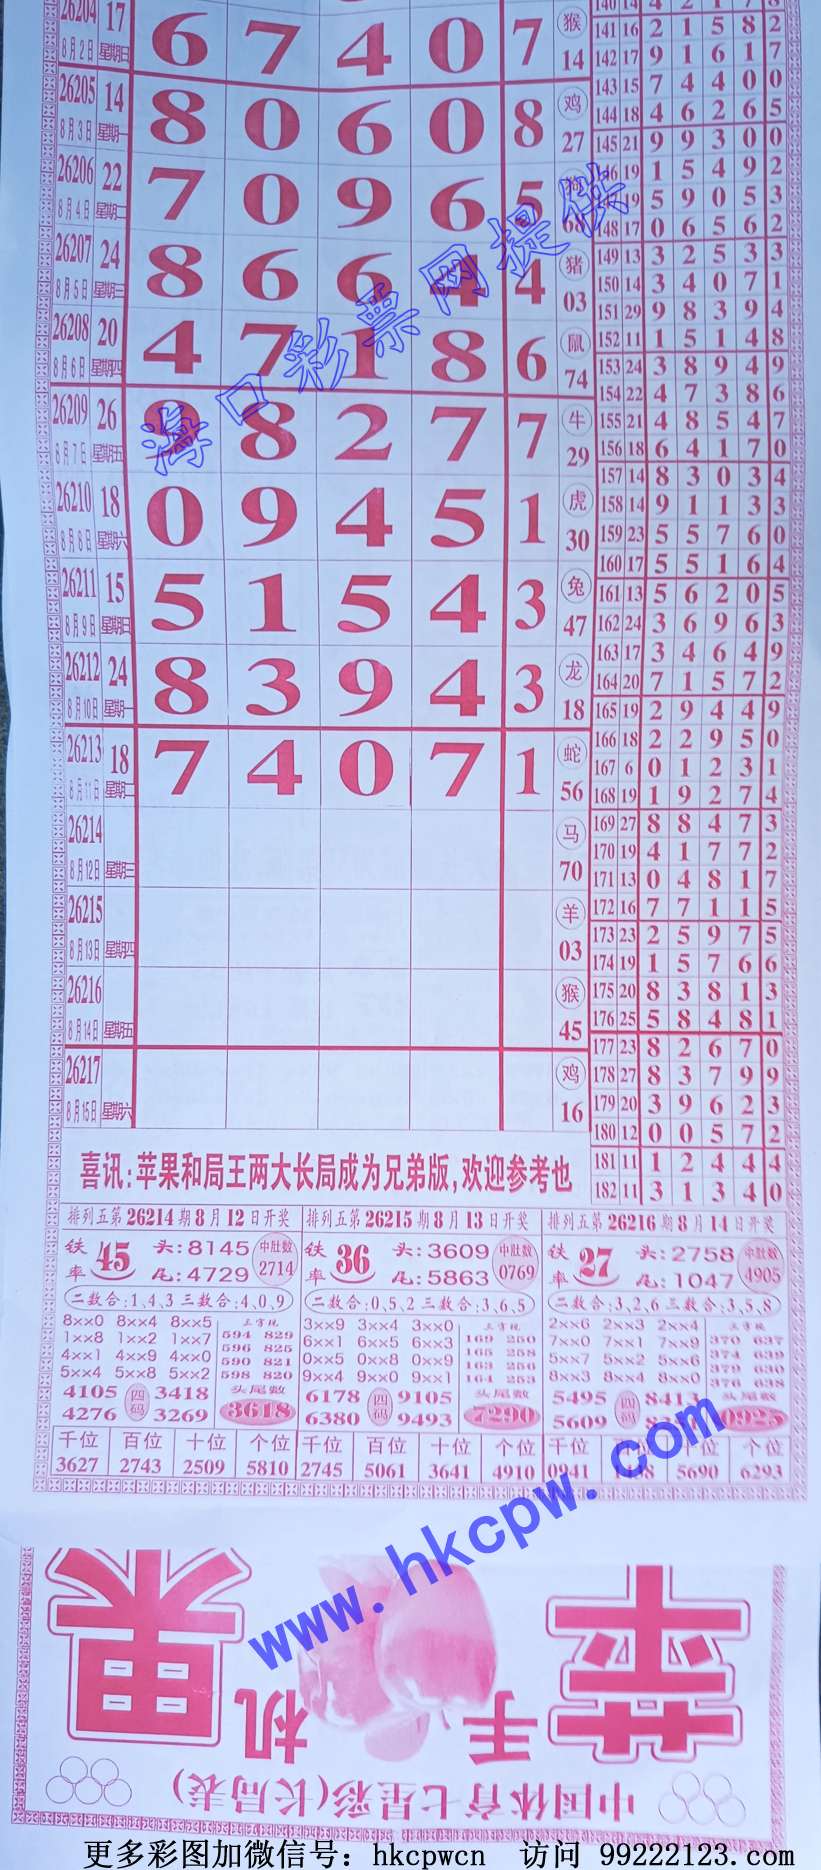 26204 17 6 7 4 0 7 猴
8月2日 星期日 14
26205 14 8 0 6 0 8 鸡
8月3日 星期一 27
26206 22 7 0 9 6 5
8月4日 星期二 68
26207 24 8 6 6 4 4 猪
8月5日 星期三 03
26208 20 4 7 1 8 6 鼠
8月6日 星期四 74
26209 26 9 8 2 7 7 牛
8月7日 星期五 29
26210 18 0 9 4 5 1 虎
8月8日 星期六 30
26211 15 5 1 5 4 3 兔
8月9日 星期日 47
26212 24 8 3 9 4 3 龙
8月10日 星期一 18
26213 18 7 4 0 7 1 蛇
8月11日 星期二 56
26214 马
8月12日 星期三 70
26215 羊
8月13日 星期四 03
26216 猴
8月14日 星期五 45
26217 鸡
8月15日 星期六 16
140 14 4 2 1 7 8
141 16 2 1 5 8 2
142 17 9 1 6 1 7
143 15 7 4 4 0 0
144 18 4 6 2 6 5
145 21 9 9 3 0 0
19 1 5 4 9 2
19 5 9 0 5 3
148 17 0 6 5 6 2
149 13 3 2 5 3 3
150 14 3 4 0 7 1
151 29 9 8 3 9 4
152 11 1 5 1 4 8
153 24 3 8 9 4 9
154 22 4 7 3 8 6
155 21 4 8 5 4 7
156 18 6 4 1 7 0
157 14 8 3 0 3 4
158 14 9 1 1 3 3
159 23 5 5 7 6 0
160 17 5 5 1 6 4
161 13 5 6 2 0 5
162 24 3 6 9 6 3
163 17 3 4 6 4 9
164 20 7 1 5 7 2
165 19 2 9 4 4 9
166 18 2 2 9 5 0
167 6 0 1 2 3 1
168 19 1 9 2 7 4
169 27 8 8 4 7 3
170 19 4 1 7 7 2
171 13 0 4 8 1 7
172 16 7 7 1 1 5
173 23 2 5 9 7 5
174 19 1 5 7 6 6
175 20 8 3 8 1 3
176 25 5 8 4 8 1
177 23 8 2 6 7 0
178 27 8 3 7 9 9
179 20 3 9 6 2 3
180 12 0 0 5 7 2
181 11 1 2 4 4 4
182 11 3 1 3 4 0
海口彩票网提供
喜讯:苹果和局王两大长局成为兄弟版,欢迎参考也
排列五第26214期8月12日开奖
铁率 45 头:8145 尾:4729 中肚数 2714
二数合:1,4,3 三数合:4,0,9
8××0 8××4 8××5 三字现
1××8 1××2 1××7 594 829
4××1 4××9 4××0 596 825
5××4 5××8 5××2 590 821
598 820
4105 四码 3418 头尾数
4276 3269 3618
千位 百位 十位 个位
3627 2743 2509 5810
排列五第26215期8月13日开奖
铁率 36 头:3609 尾:5863 中肚数 0769
二数合:0,5,2 三数合:3,6,5
3××9 3××4 3××0 三字现
6××1 6××5 6××3 169 250
0××5 0××8 0××9 165 258
9××4 9××0 9××1 163 256
164 253
6178 四码 9105 头尾数
6380 9493 7290
千位 百位 十位 个位
2745 5061 3641 4910
排列五第26216期8月14日开奖
铁率 27 头:2758 尾:1047 中肚数 4905
二数合:3,2,6 三数合:3,5,8
2××6 2××3 2××4 三字现
7××0 7××1 7××9 370 637
5××7 5××2 5××6 374 639
8××3 8××4 8××0 379 630
376 638
5495 四码 8413 头尾数
5609 0925
千位 个位
0941 5690 6293
www.hkcpw.com
苹果
手机
中国体育七星彩(长局表)
更多彩图加微信号: hkcpwcn 访问 99222123.com